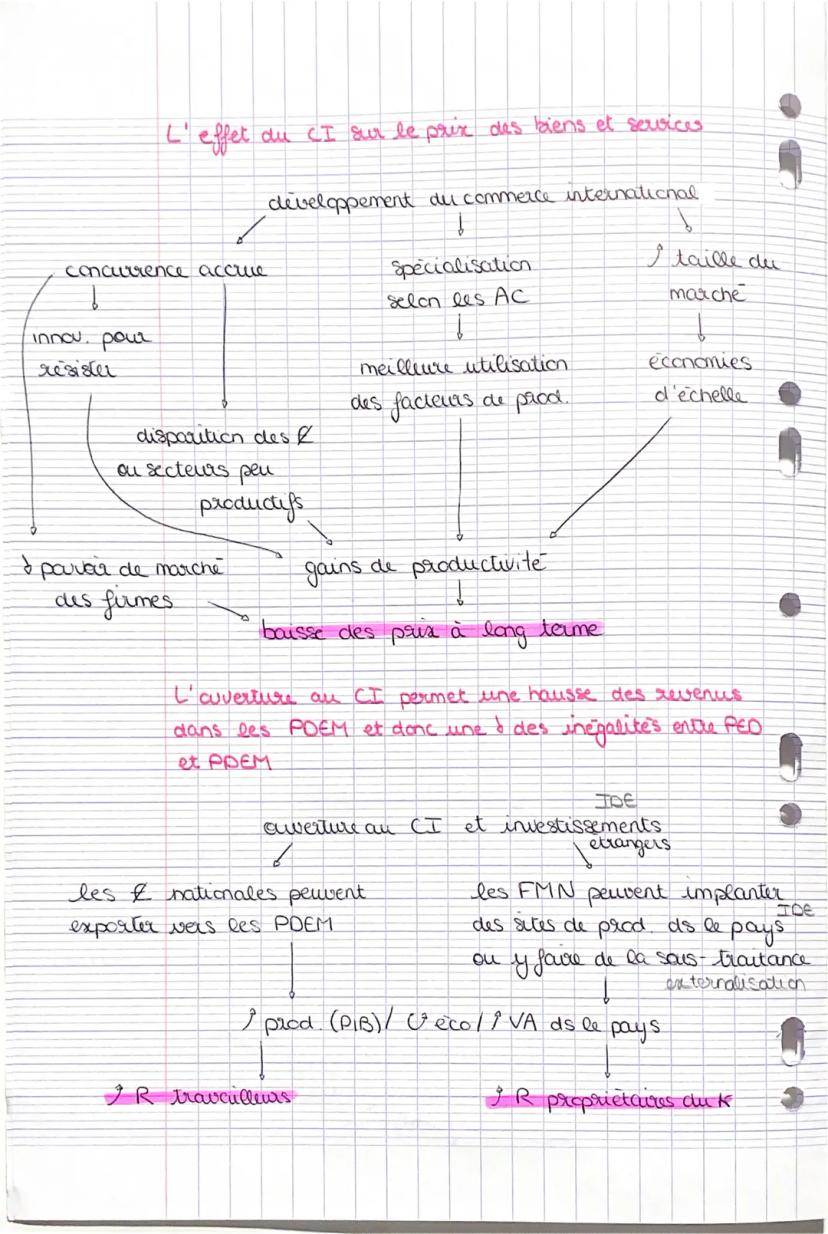 L'effet du CI sur le prix des biens et services
développement du commerce international
concurrence accrue
spécialisation
selon les AC
↗ taille du
marché
innov. pour
résister
meilleure utilisation
des facteurs de prod.
économies
d'échelle
disparition des
ou secteurs peu
productifs
↘ pouvoir de marché
des firmes
gains de productivité
baisse des prix à long terme
L'ouverture au CI permet une hausse des revenus
dans les PDEM et donc une ↘ des inégalités entre PED
et PDEM
IDE
ouverture au CI et investissements
étrangers
les nationales peuvent
exporter vers les PDEM
les FMN peuvent implanter
IDE
des sites de prod. ds le pays
ou y faire de la sous-traitance
externalisation
↗ prod. (PIB) / éco / ↗ VA ds le pays
↗ R travailleurs
↗ R propriétaires du K